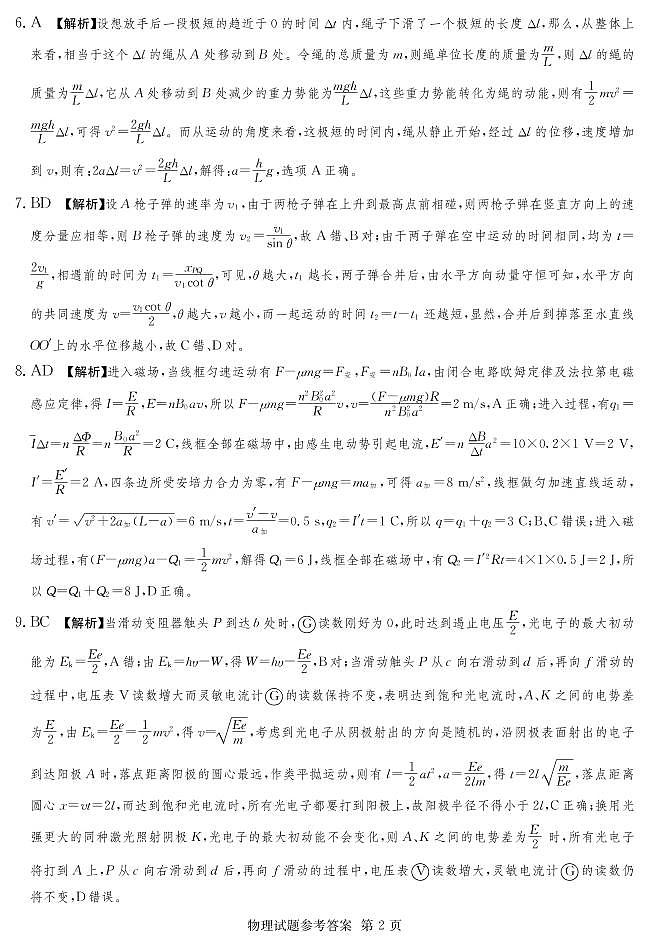 6. A 【解析】设想放手后一段极短的趋近于 0 的时间 Δt 内,绳子下滑了一个极短的长度 Δl,那么,从整体上
来看,相当于这个 Δl 的绳从 A 处移动到 B 处。令绳的总质量为 m,则绳单位长度的质量为 m/L,则 Δl 的绳的
质量为 m/L Δl,它从 A 处移动到 B 处减少的重力势能为 mgh/L Δl,这些重力势能转化为绳的动能,则有 1/2 mv²=
mgh/L Δl,可得 v²=2gh/L Δl。而从运动的角度来看,这极短的时间内,绳从静止开始,经过 Δl 的位移,速度增加
到 v,则有:2aΔl=v²=2gh/L Δl,解得:a=h/L g,选项 A 正确。
7. BD 【解析】设 A 枪子弹的速率为 v₁,由于两枪子弹在上升到最高点前相碰,则两枪子弹在竖直方向上的速
度分量应相等,则 B 枪子弹的速度为 v₂=v₁/sin θ,故 A 错、B 对;由于两子弹在空中运动的时间相同,均为 t=
2v₁/g,相遇前的时间为 t₁=x_PQ/(v₁cot θ),可见,θ 越大,t₁ 越长,两子弹合并后,由水平方向动量守恒可知,水平方向
的共同速度为 v=v₁cot θ/2,θ 越大,v 越小,而一起运动的时间 t₂=t−t₁ 还越短,显然,合并后到掉落至水直线
OO′上的水平位移越小,故 C 错、D 对。
8. AD 【解析】进入磁场,当线框匀速运动有 F−μmg=F安,F安=nB₀Ia,由闭合电路欧姆定律及法拉第电磁
感应定律,得 I=E/R,E=nB₀av,所以 F−μmg=n²B₀²a²/R v,v=(F−μmg)R/(n²B₀²a²)=2 m/s,A 正确;进入过程,有q₁=
I̅Δt=n ΔΦ/R=n B₀a²/R=2 C,线框全部在磁场中,由感生电动势引起电流,E′=n ΔB/Δt a²=10×0.2×1 V=2 V,
I′=E′/R=2 A,四条边所受安培力合力为零,有 F−μmg=ma加,可得 a加=8 m/s²,线框做匀加速直线运动,
有 v′=√(v²+2a加(L−a))=6 m/s,t=(v′−v)/a加=0.5 s,q₂=I′t=1 C,所以 q=q₁+q₂=3 C;B、C 错误;进入磁
场过程,有(F−μmg)a−Q₁=1/2 mv²,解得 Q₁=6 J,线框全部在磁场中,有 Q₂=I′²Rt=4×1×0.5 J=2 J,所
以 Q=Q₁+Q₂=8 J,D 正确。
9. BC 【解析】当滑动变阻器触头 P 到达 b 处时,Ⓖ读数刚好为 0,此时达到遏止电压 E/2,光电子的最大初动
能为 Eₖ=Ee/2,A 错;由 Eₖ=hν−W,得 W=hν−Ee/2,B 对;当滑动触头 P 从 c 向右滑动到 d 后,再向 f 滑动的
过程中,电压表 V 读数增大而灵敏电流计Ⓖ的读数保持不变,表明达到饱和光电流时,A、K 之间的电势差
为 E/2,由 Eₖ=Ee/2=1/2 mv²,得 v=√(Ee/m),考虑到光电子从阴极射出的方向是随机的,沿阴极表面射出的电子
到达阳极 A 时,落点距离阳极的圆心最远,作类平抛运动,则有 l=1/2 at²,a=Ee/2lm,得 t=2l√(m/Ee),落点距离
圆心 x=vt=2l,而达到饱和光电流时,所有光电子都要打到阳极上,故阳极半径不得小于 2l,C 正确;换用光
强更大的同种激光照射阴极 K,光电子的最大初动能不会变化,则 A、K 之间的电势差为 E/2 时,所有光电子
将打到 A 上,P 从 c 向右滑动到 d 后,再向 f 滑动的过程中,电压表Ⓥ读数增大,灵敏电流计Ⓖ的读数仍
将不变,D 错误。
物理试题参考答案 第 2 页